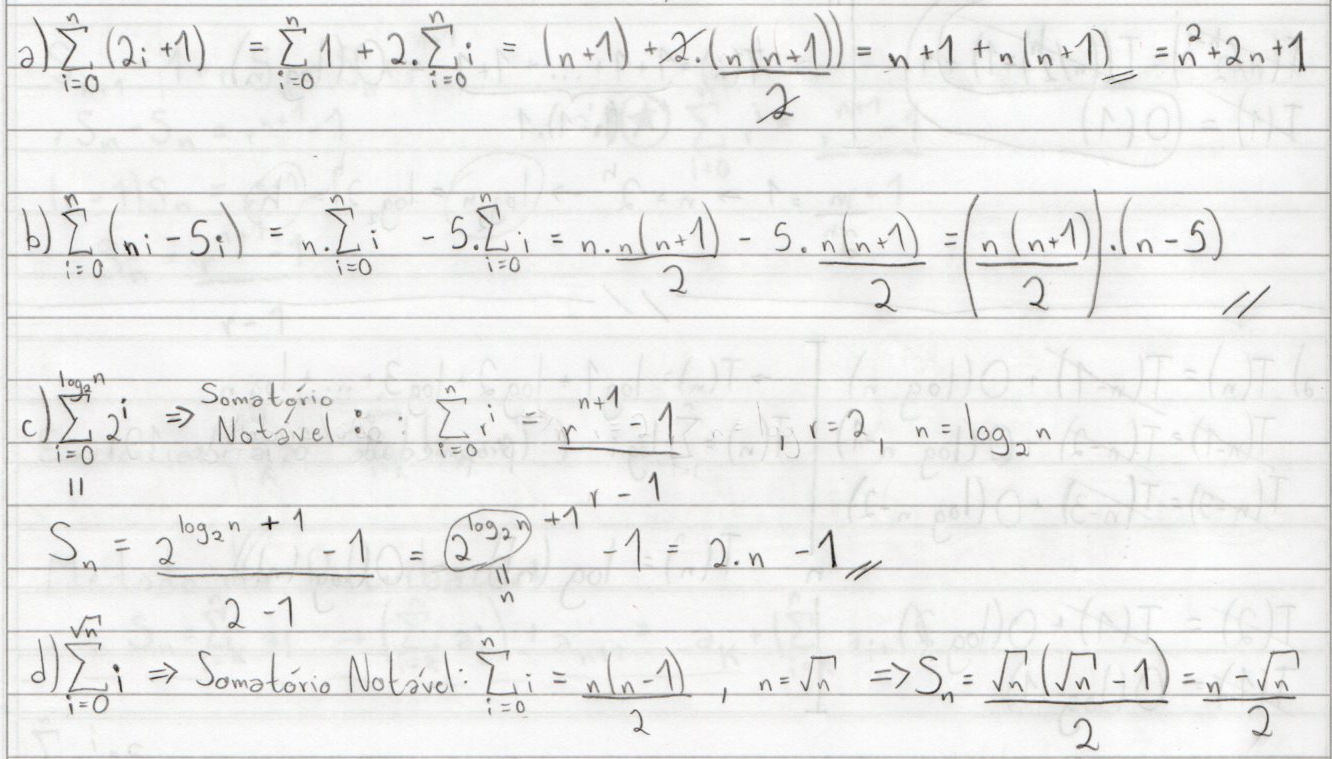 a) ∑_{i=0}^{n} (2i + 1) = ∑_{i=0}^{n} 1 + 2.∑_{i=0}^{n} i = (n+1) + 2.(n(n+1))/2 = n + 1 + n(n+1) = n² + 2n + 1
b) ∑_{i=0}^{n} (ni - 5i) = n.∑_{i=0}^{n} i - 5.∑_{i=0}^{n} i = n.n(n+1)/2 - 5.n(n+1)/2 = (n(n+1)/2).(n - 5)
c) ∑_{i=0}^{log₂n} 2^i ⇒ Somatório Notável: ∑_{i=0}^{n} r^i = (r^{n+1} - 1)/(r - 1), r=2, n = log₂n
=
S_n = (2^{log₂n + 1} - 1)/(2 - 1) = 2^{log₂n + 1} - 1 = 2.n - 1
= n
d) ∑_{i=0}^{√n} i ⇒ Somatório Notável: ∑_{i=0}^{n} i = n(n-1)/2, n=√n ⇒ S_n = √n(√n - 1)/2 = (n - √n)/2